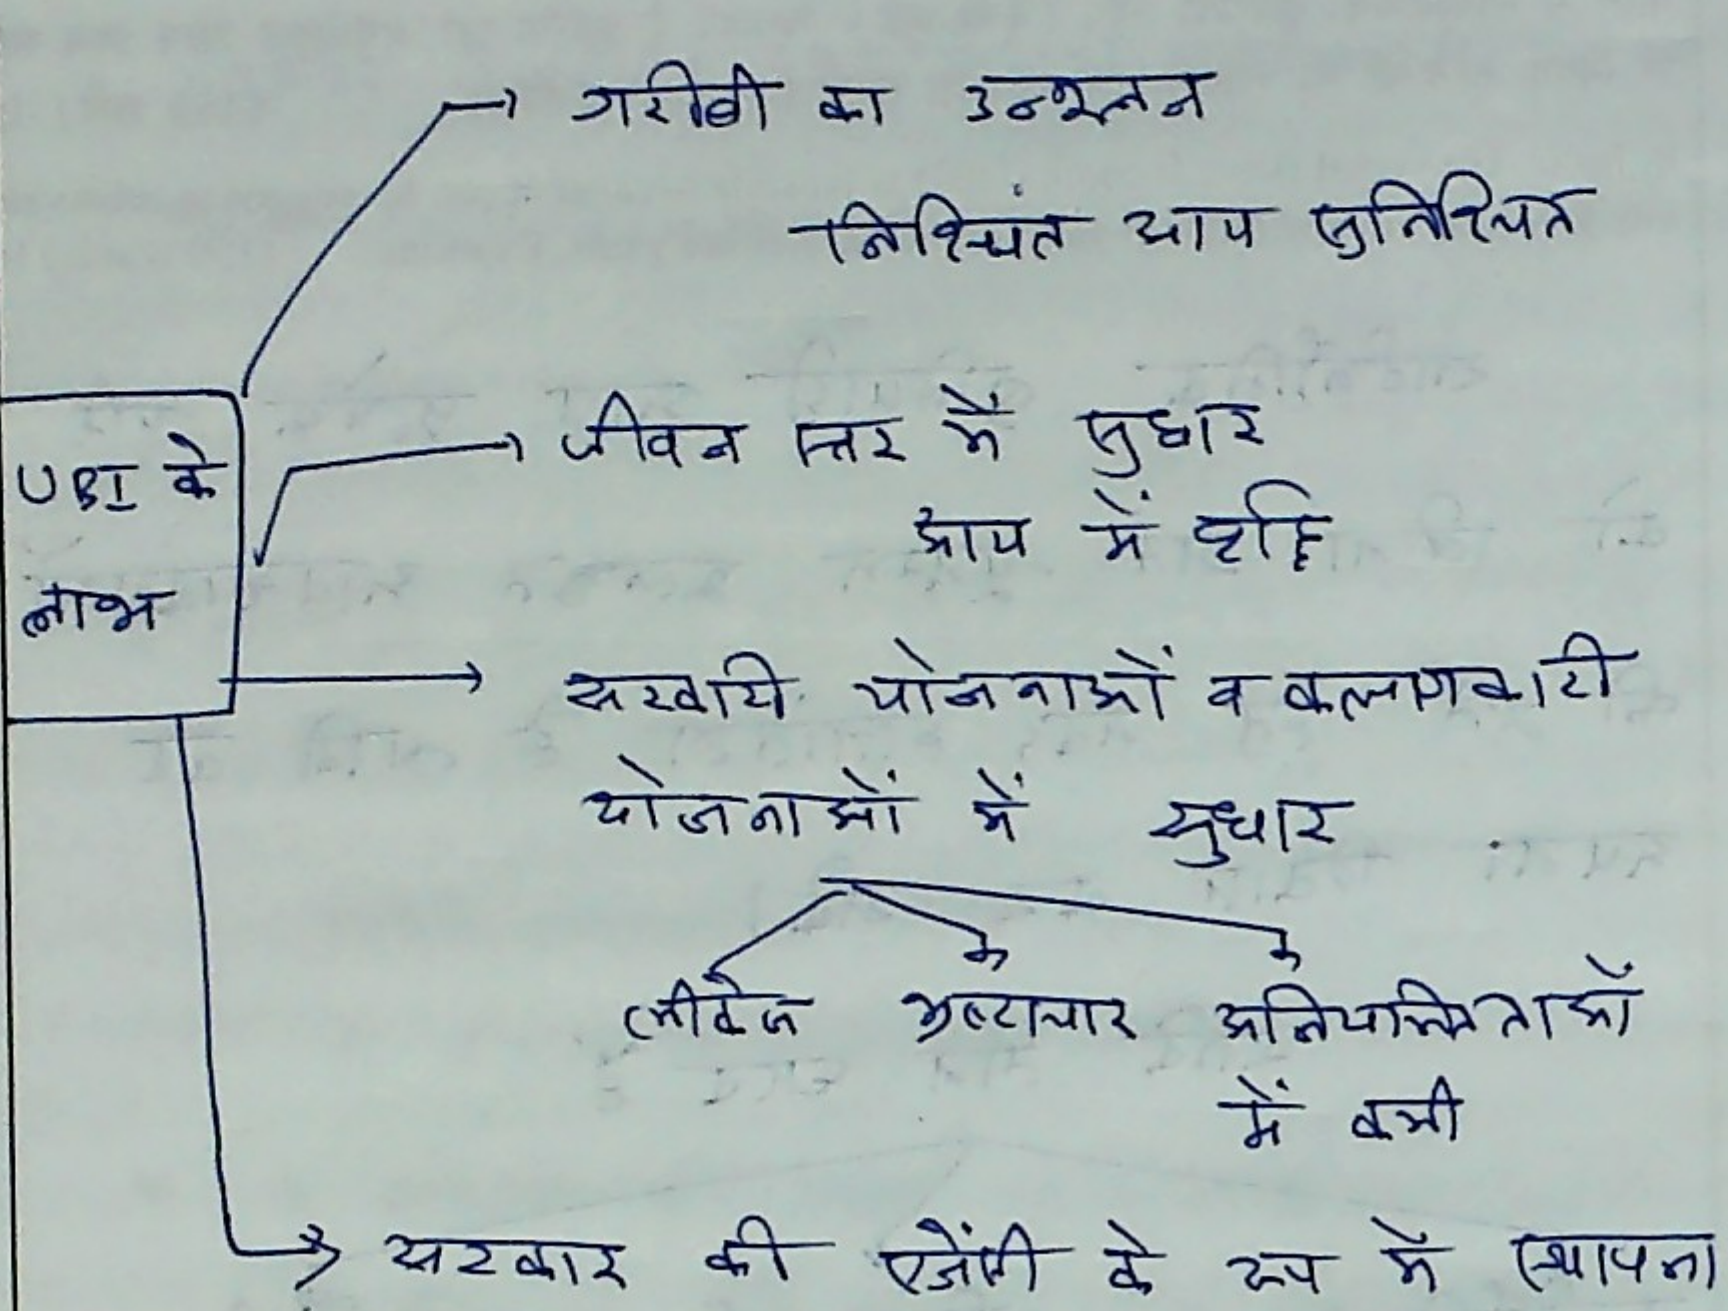 गरीबी का उन्मूलन
निश्चिंत आय सुनिश्चित
UBI के
लाभ
जीवन स्तर में सुधार
आय में वृद्धि
सरकारी योजनाओं व कल्याणकारी
योजनाओं में सुधार
लीकेज भ्रष्टाचार अनियमितताओं
में कमी
सरकार की एजेंसी के रूप में स्थापना